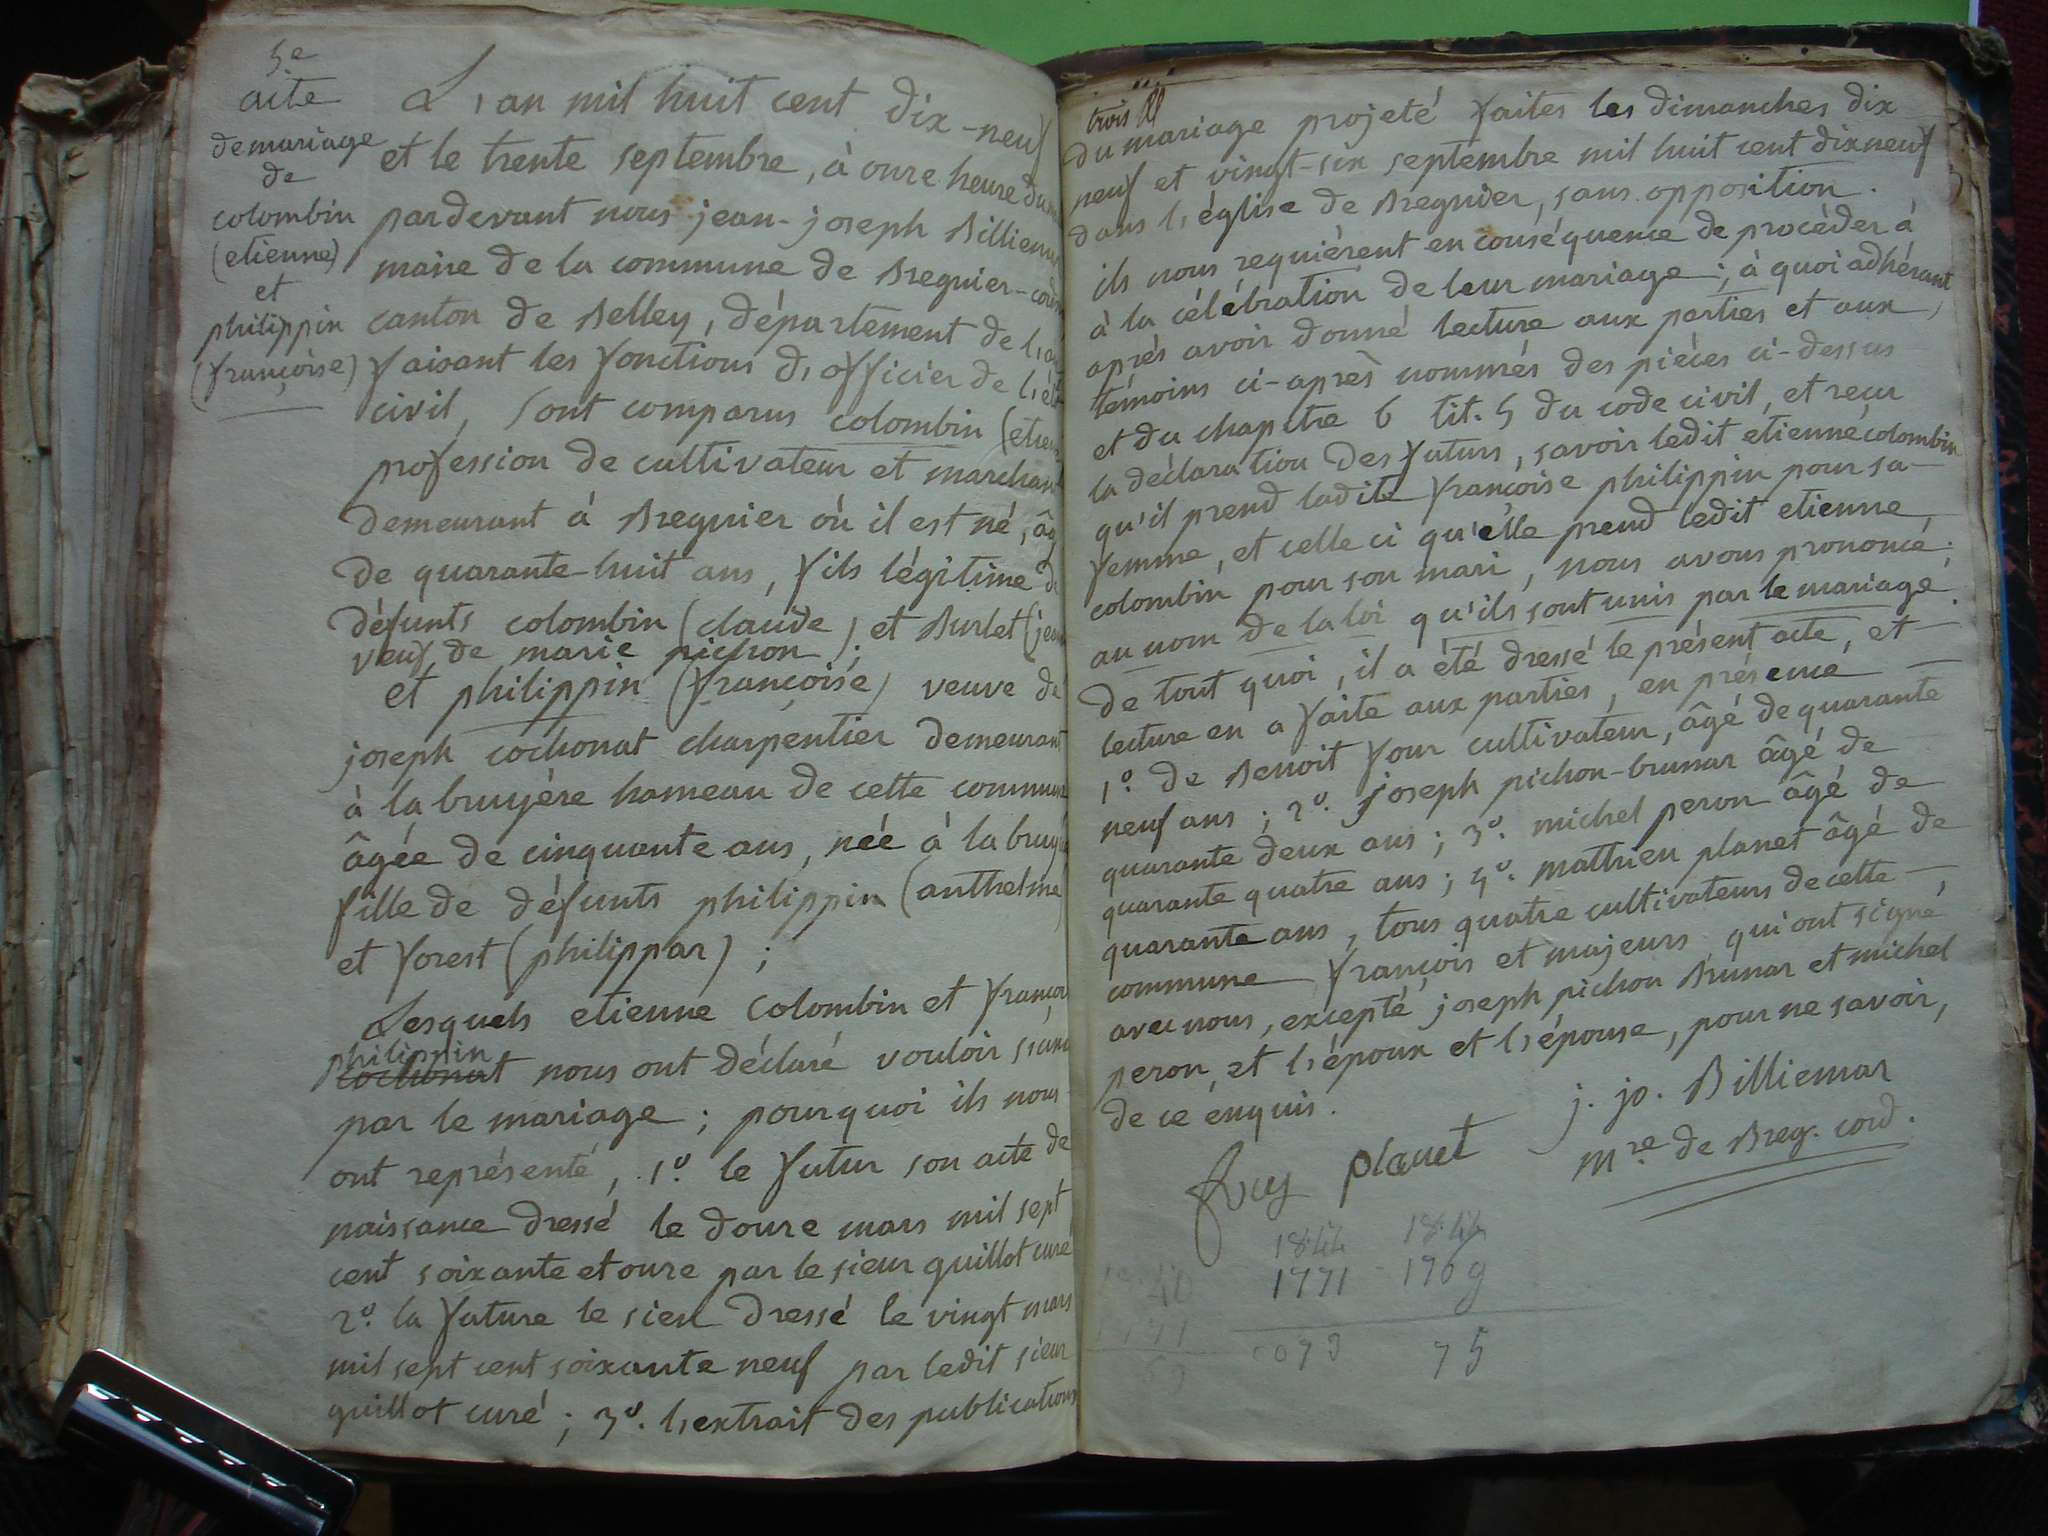 5.e
acte
de mariage
de
colombin
(etienne)
et
philippin
(françoise)
L'an mil huit cent dix-neuf
et le trente septembre, à onze heure du
pardevant nous jean-joseph Billiemar
maire de la commune de Bregnier-cord
canton de Belley, département de l'ain
faisant les fonctions d'officier de l'ét
civil, sont comparus colombin (etien
profession de cultivateur et marchan
demeurant à Bregnier où il est né, âg
de quarante-huit ans, fils légitime de
défunts colombin (claude) et Burlet (jea
veuf de marie pichon ;
et philippin (françoise) veuve de
joseph cochonat charpentier demeurant
à la bruyére hameau de cette commune
âgée de cinquante ans, née à la bruy
fille de défunts philippin (anthelme
et forest (philippar) ;
Lesquels etienne colombin et françoi
philippin
cochonat nous ont déclaré vouloir s'uni
par le mariage ; pourquoi ils nous
ont représenté, 1º. le futur son acte de
naissance dressé le douze mars mil sept
cent soixante et onze par le sieur guillot curé
2º. la future le sien dressé le vingt mars
mil sept cent soixante neuf par ledit sieur
guillot curé ; 3º. l'extrait des publications
trois
du mariage projeté faites les dimanches dix
neuf et vingt-six septembre mil huit cent dix neuf
dans l'église de Bregnier, sans opposition.
ils nous requiérent en conséquence de procéder à
à la célébration de leur mariage ; à quoi adhérant
aprés avoir donné lecture aux parties et aux
témoins ci-après nommés des piéces ci-dessus
et du chapitre 6 tit. 5 du code civil, et reçu
la déclaration des futurs, savoir ledit etienne colombin
qu'il prend ladite françoise philippin pour sa
femme, et celle ci qu'elle prend ledit etienne
colombin pour son mari, nous avons prononcé
au nom de la loi qu'ils sont unis par le mariage.
de tout quoi, il a été dressé le présent acte, et
lecture en a faite aux parties, en présence
1º. de Benoit four cultivateur, âgé de quarante
neuf ans ; 2º. joseph pichon-brunar âgé de
quarante deux ans ; 3º. michel peron âgé de
quarante quatre ans ; 4º. mathieu planet âgé de
quarante ans, tous quatre cultivateurs de cette
commune françois et majeurs qui ont signé
avec nous, excepté joseph pichon Brunar et michel
peron, et l'époux et l'épouse, pour ne savoir,
de ce enquis.
j. jo. Billiemar
planet
mre de Breg. cord.
1844 1844
1771 1769
073 75